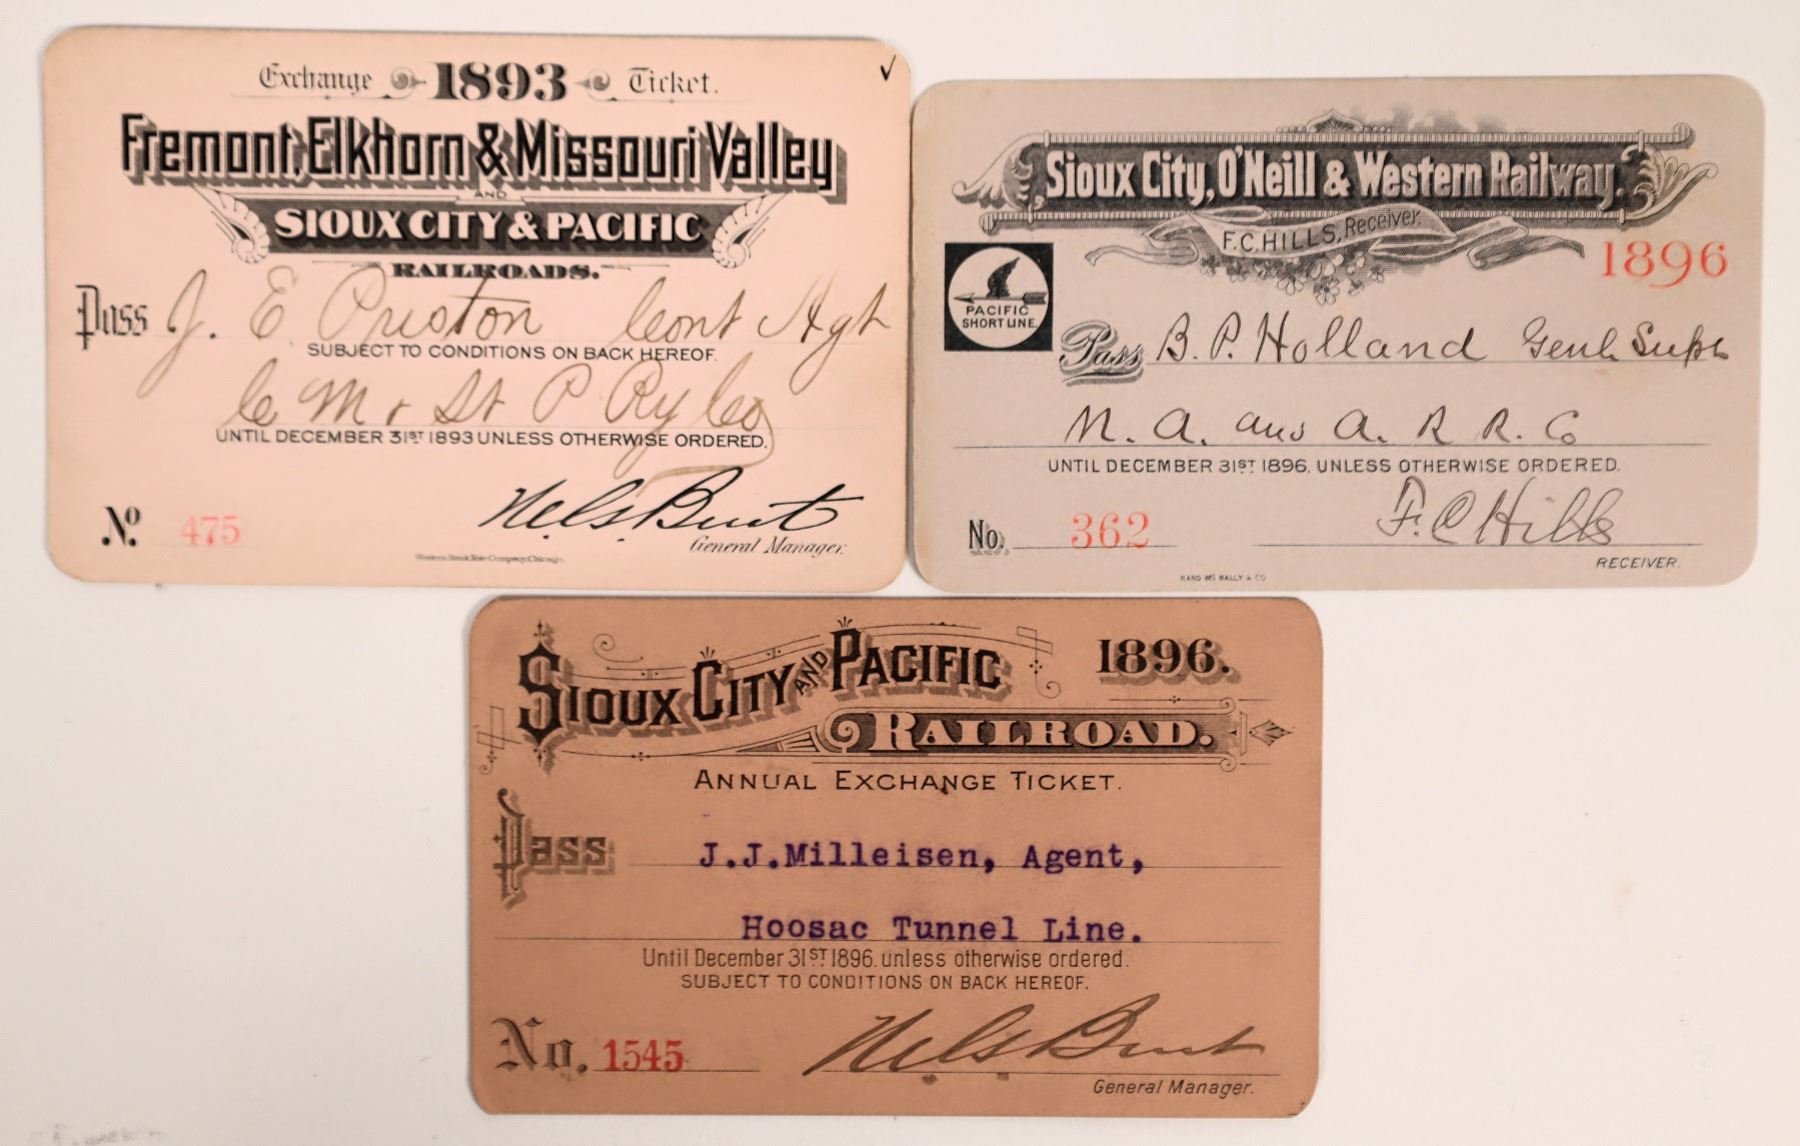 Exchange 1893 Ticket.
Fremont, Elkhorn & Missouri Valley
AND
SIOUX CITY & PACIFIC
RAILROADS.
Pass J. E Preston Cont Agt
SUBJECT TO CONDITIONS ON BACK HEREOF.
C M & St P Ry Co
UNTIL DECEMBER 31ST 1893 UNLESS OTHERWISE ORDERED.
No 475
General Manager.
Western Bank Note Company Chicago
Sioux City, O'Neill & Western Railway.
F. C. HILLS, Receiver.
1896
PACIFIC
SHORT LINE.
Pass B. P. Holland Genl Supt
N. A. and A. R R. Co
UNTIL DECEMBER 31ST 1896, UNLESS OTHERWISE ORDERED.
No. 362
F. C Hills
RECEIVER.
RAND MC NALLY & CO
SIOUX CITY AND PACIFIC 1896.
RAILROAD.
ANNUAL EXCHANGE TICKET.
Pass J.J.Milleisen, Agent,
Hoosac Tunnel Line.
Until December 31ST 1896. unless otherwise ordered.
SUBJECT TO CONDITIONS ON BACK HEREOF.
No. 1545
General Manager.